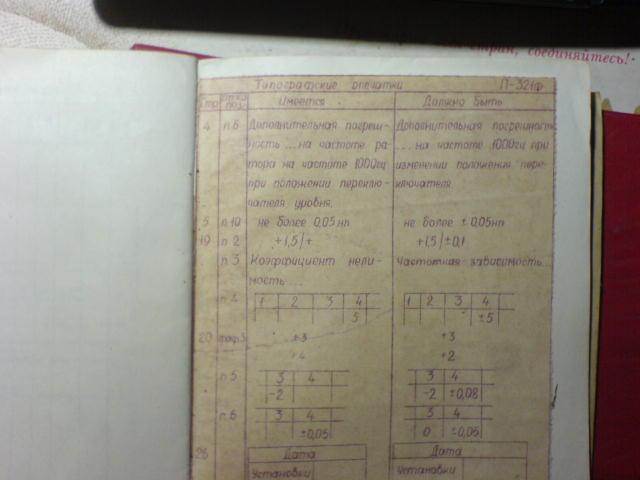 соединяйтесь!
Типографские опечатки П-321ф
Стр Имеется Должно быть
4 п.6 Дополнительная погреш- Дополнительная погрешность
ность ... на частоте ра- ... на частоте 1000гц при
тора на частоте 1000гц изменении положения пере-
при положении переклю- ключателя
чателя уровня.
5 п.10 не более 0,05нп не более ±0,05нп
19 п 2 +1,5 + +1,5 ±0,1
п 3 Коэффициент нели- Частотная зависимость...
мость...
1 2 3 4 1 2 3 4
5 ±5
20 +3 +3
+2
п.5 3 4 3 4
-2 -2 ±0,08
п.6 3 4 3 4
±0,05 0 ±0,05
26 Дата Дата
Установки Установки